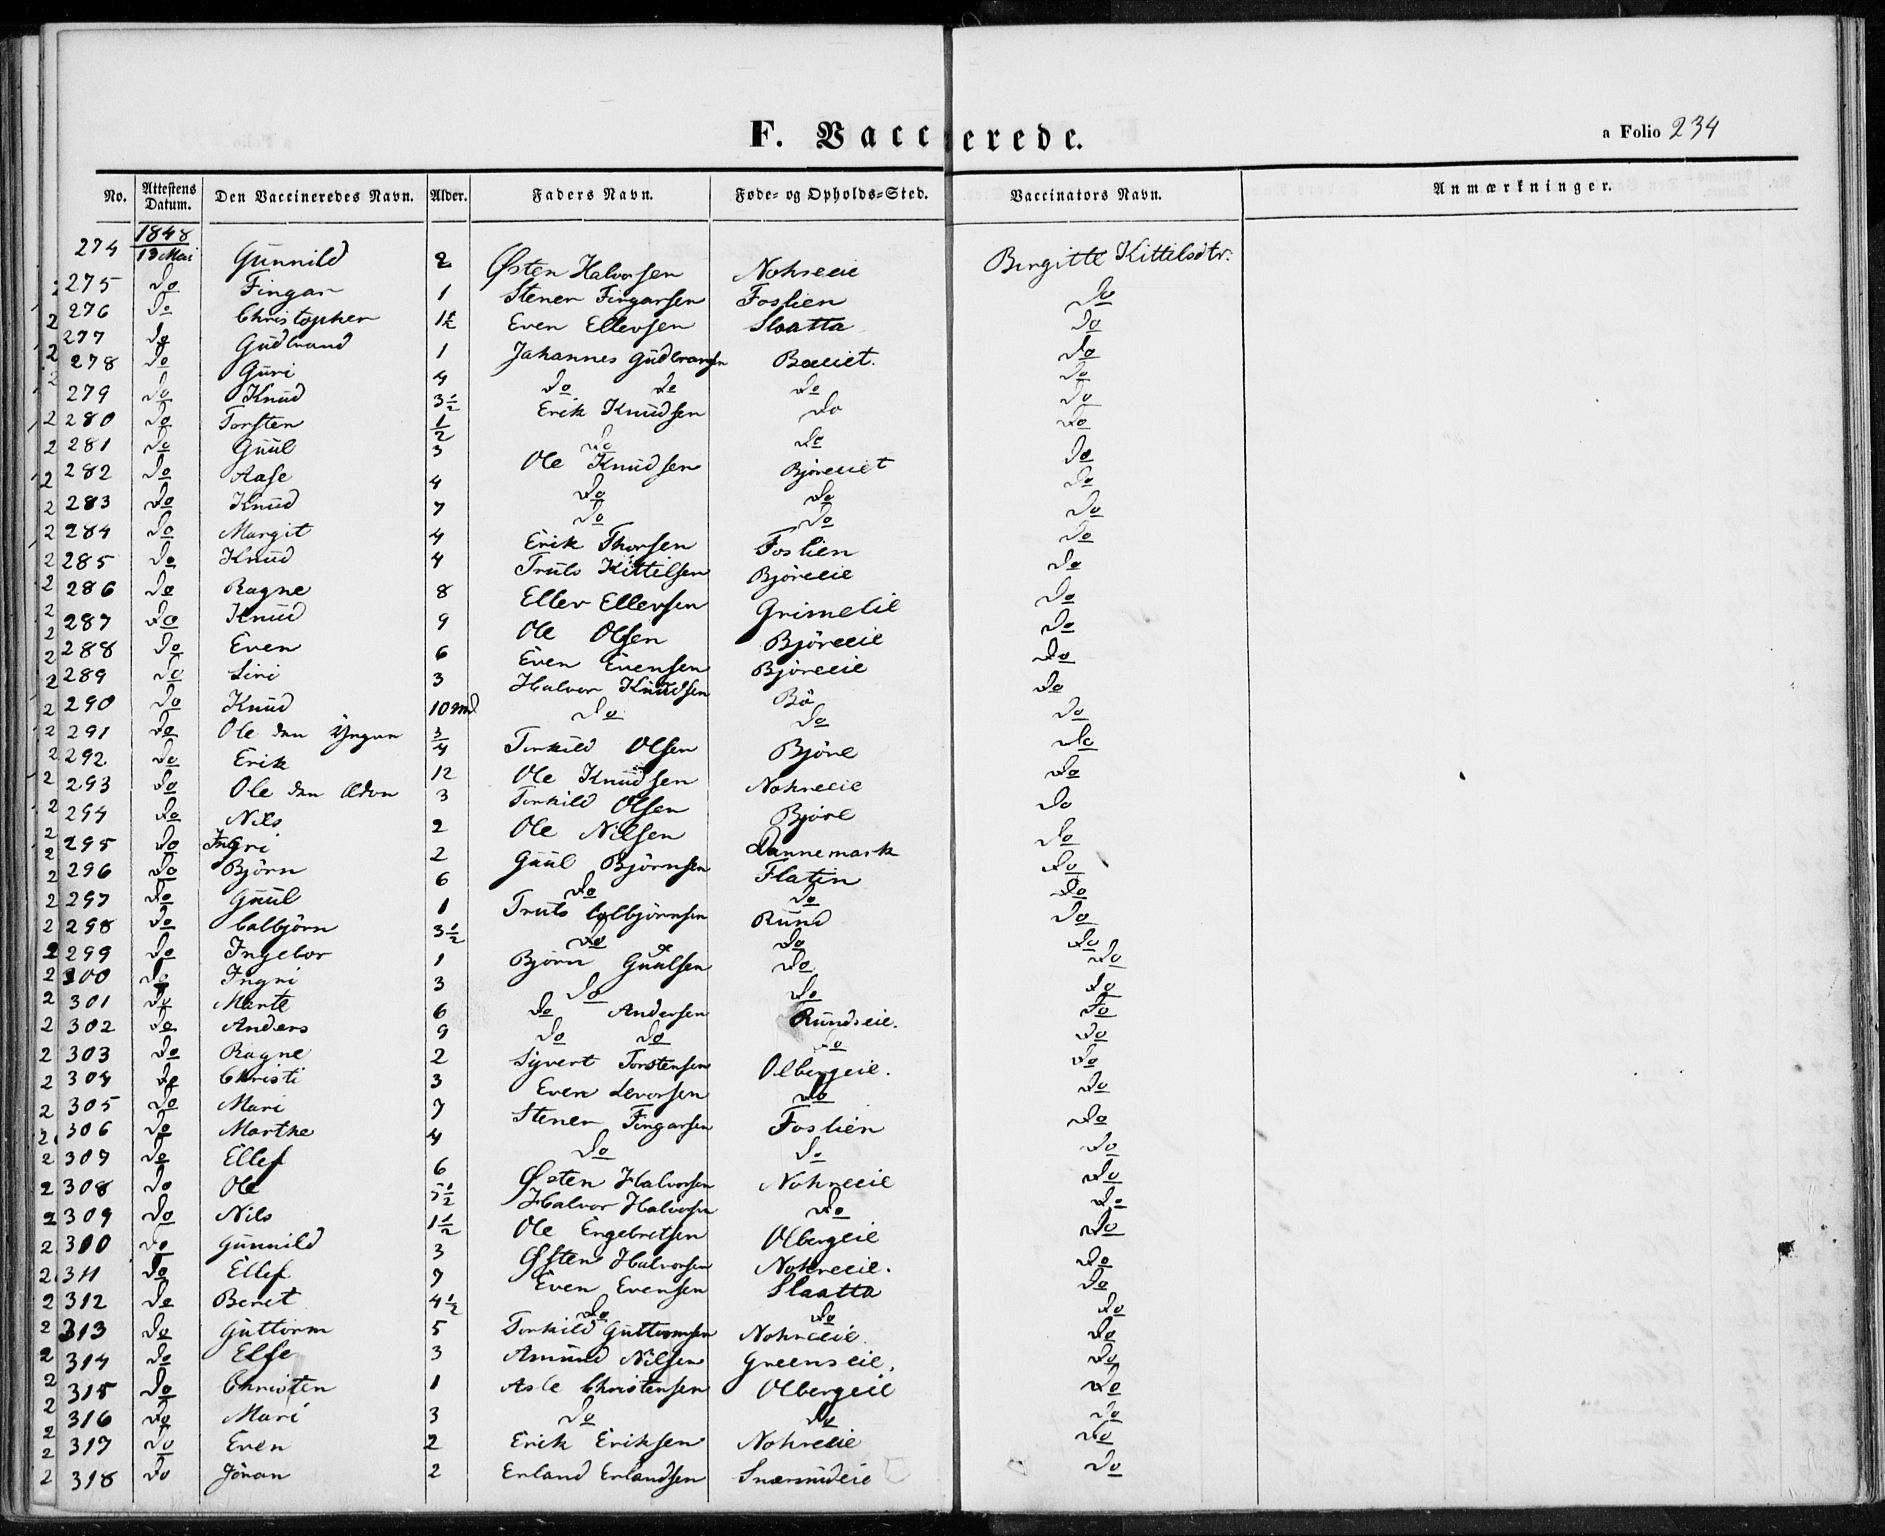 F. Vaccinerede.
a Folio 234
No. Attestens Datum. Den Vaccineredes Navn. Alder. Faders Navn. Føde- og Opholds-Sted. Vaccinators Navn. Anmærkninger.
1848
274 13 Mai Gunnild 2 Østen Halvorsen Nohreeie Birgitte Kittilsdtr.
275 Do Fingar 1 Stener Fingarsen Foslien Do
276 Do Christopher 1½ Even Ellevsen Slaatta Do
277 Do Gudbrand 1 Johannes Gudbransen Bøeiet. Do
278 Do Guri 4 Do Do Do Do
279 Do Knud 3½ Erik Knudsen Do Do
280 Do Torsten ½ Do Do Do
281 Do Guul 3 Ole Knudsen Björeeiet Do
282 Do Aase 4 Do Do Do
283 Do Knud 7 Do Do Do
284 Do Margit 4 Erik Thorsen Foslien Do
285 Do Knud 4 Truls Kittilsen Björeeie Do
286 Do Ragne 8 Ellev Ellevsen Grimelie Do
287 Do Knud 9 Ole Olsen Björeeie Do
288 Do Even 6 Even Evensen Björeeie Do
289 Do Siri 3 Halvor Knudsen Bö Do
290 Do Knud 10 md Do Do Do
291 Do Ole den Yngre ¾ Torkild Olsen Björe Do
292 Do Erik 12 Ole Knudsen Nohreeie Do
293 Do Ole den Ældre 3 Torkild Olsen Björe Do
294 Do Nils 2 Ole Nilsen Dannemark Do
295 Do Ingri 2 Guul Björnsen Flaten Do
296 Do Björn 6 Do Do Do
297 Do Guul 1 Truls Colbjörnsen Rund Do
298 Do Colbjörn 3½ Do Do Do
299 Do Ingebor 1 Björn Guulsen Do Do
300 Do Ingri 3 Do Do Do
301 Do Marte 6 Do Andersen Rundseie. Do
302 Do Anders 9 Do Do Do Do
303 Do Ragne 2 Syvert Torstensen Olbergeie. Do
304 Do Christi 3 Even Levorsen Do Do
305 Do Mari 7 Stener Fingarsen Foslien Do
306 Do Marthe 4 Do Do Do
307 Do Ellef 6 Østen Halvorsen Nohreeie Do
308 Do Ole 5½ Halvor Halvorsen Do Do
309 Do Nils 1½ Ole Engebretsen Olbergeie Do
310 Do Gunnild 3 Østen Halvorsen Nohreeie. Do
311 Do Ellef 7 Even Evensen Slaatta Do
312 Do Beret 4½ Do Do Do
313 Do Guttorm 5 Torkild Guttormsen Nohreeie. Do
314 Do Else 3 Amund Nilsen Greenseie. Do
315 Do Christen 1 Asle Christensen Olbergeie Do
316 Do Mari 3 Do Do Do
317 Do Even 2 Erik Eriksen Nohreeie Do
318 Do Jöran 2 Erland Erlandsen Snarumdeie Do